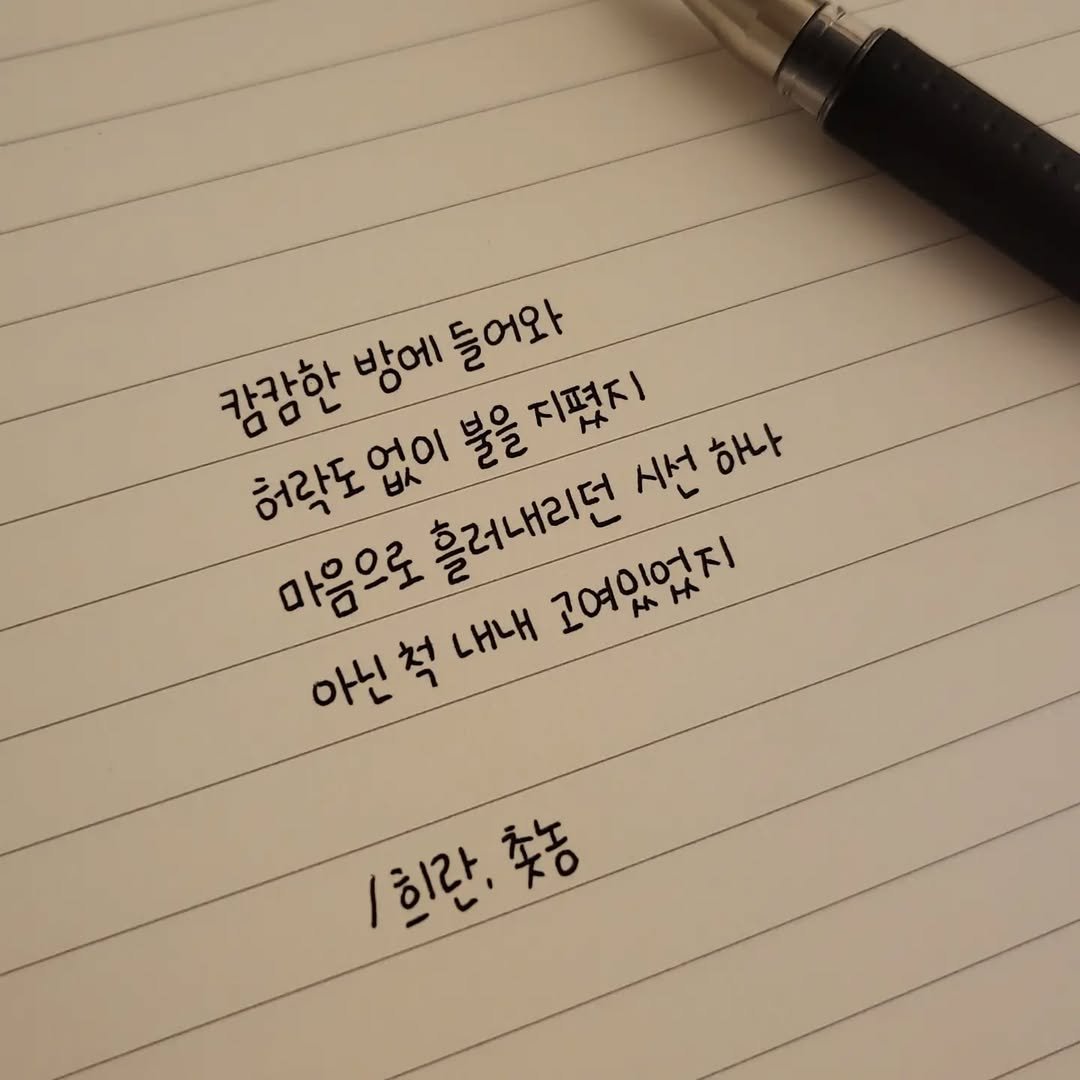 캄캄한 방에 들어와
허락도 없이 불을 지폈지
마음으로 흘러내리던 시선 하나
아닌 척 내내 고여있었지
/ 희란, 촛농